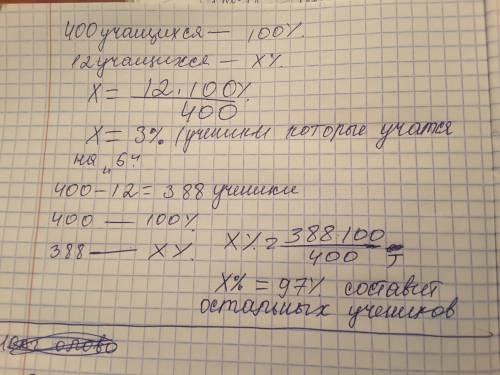 400 учащихся — 100%.
12 учащихся — X%
X = 12·100% / 400
X = 3% (ученики которые учатся
на „6"
400-12 = 388 ученики
400 — 100%
388 — X%. X% = 388·100 / 400
X% = 97% составит
остальных учеников
олово